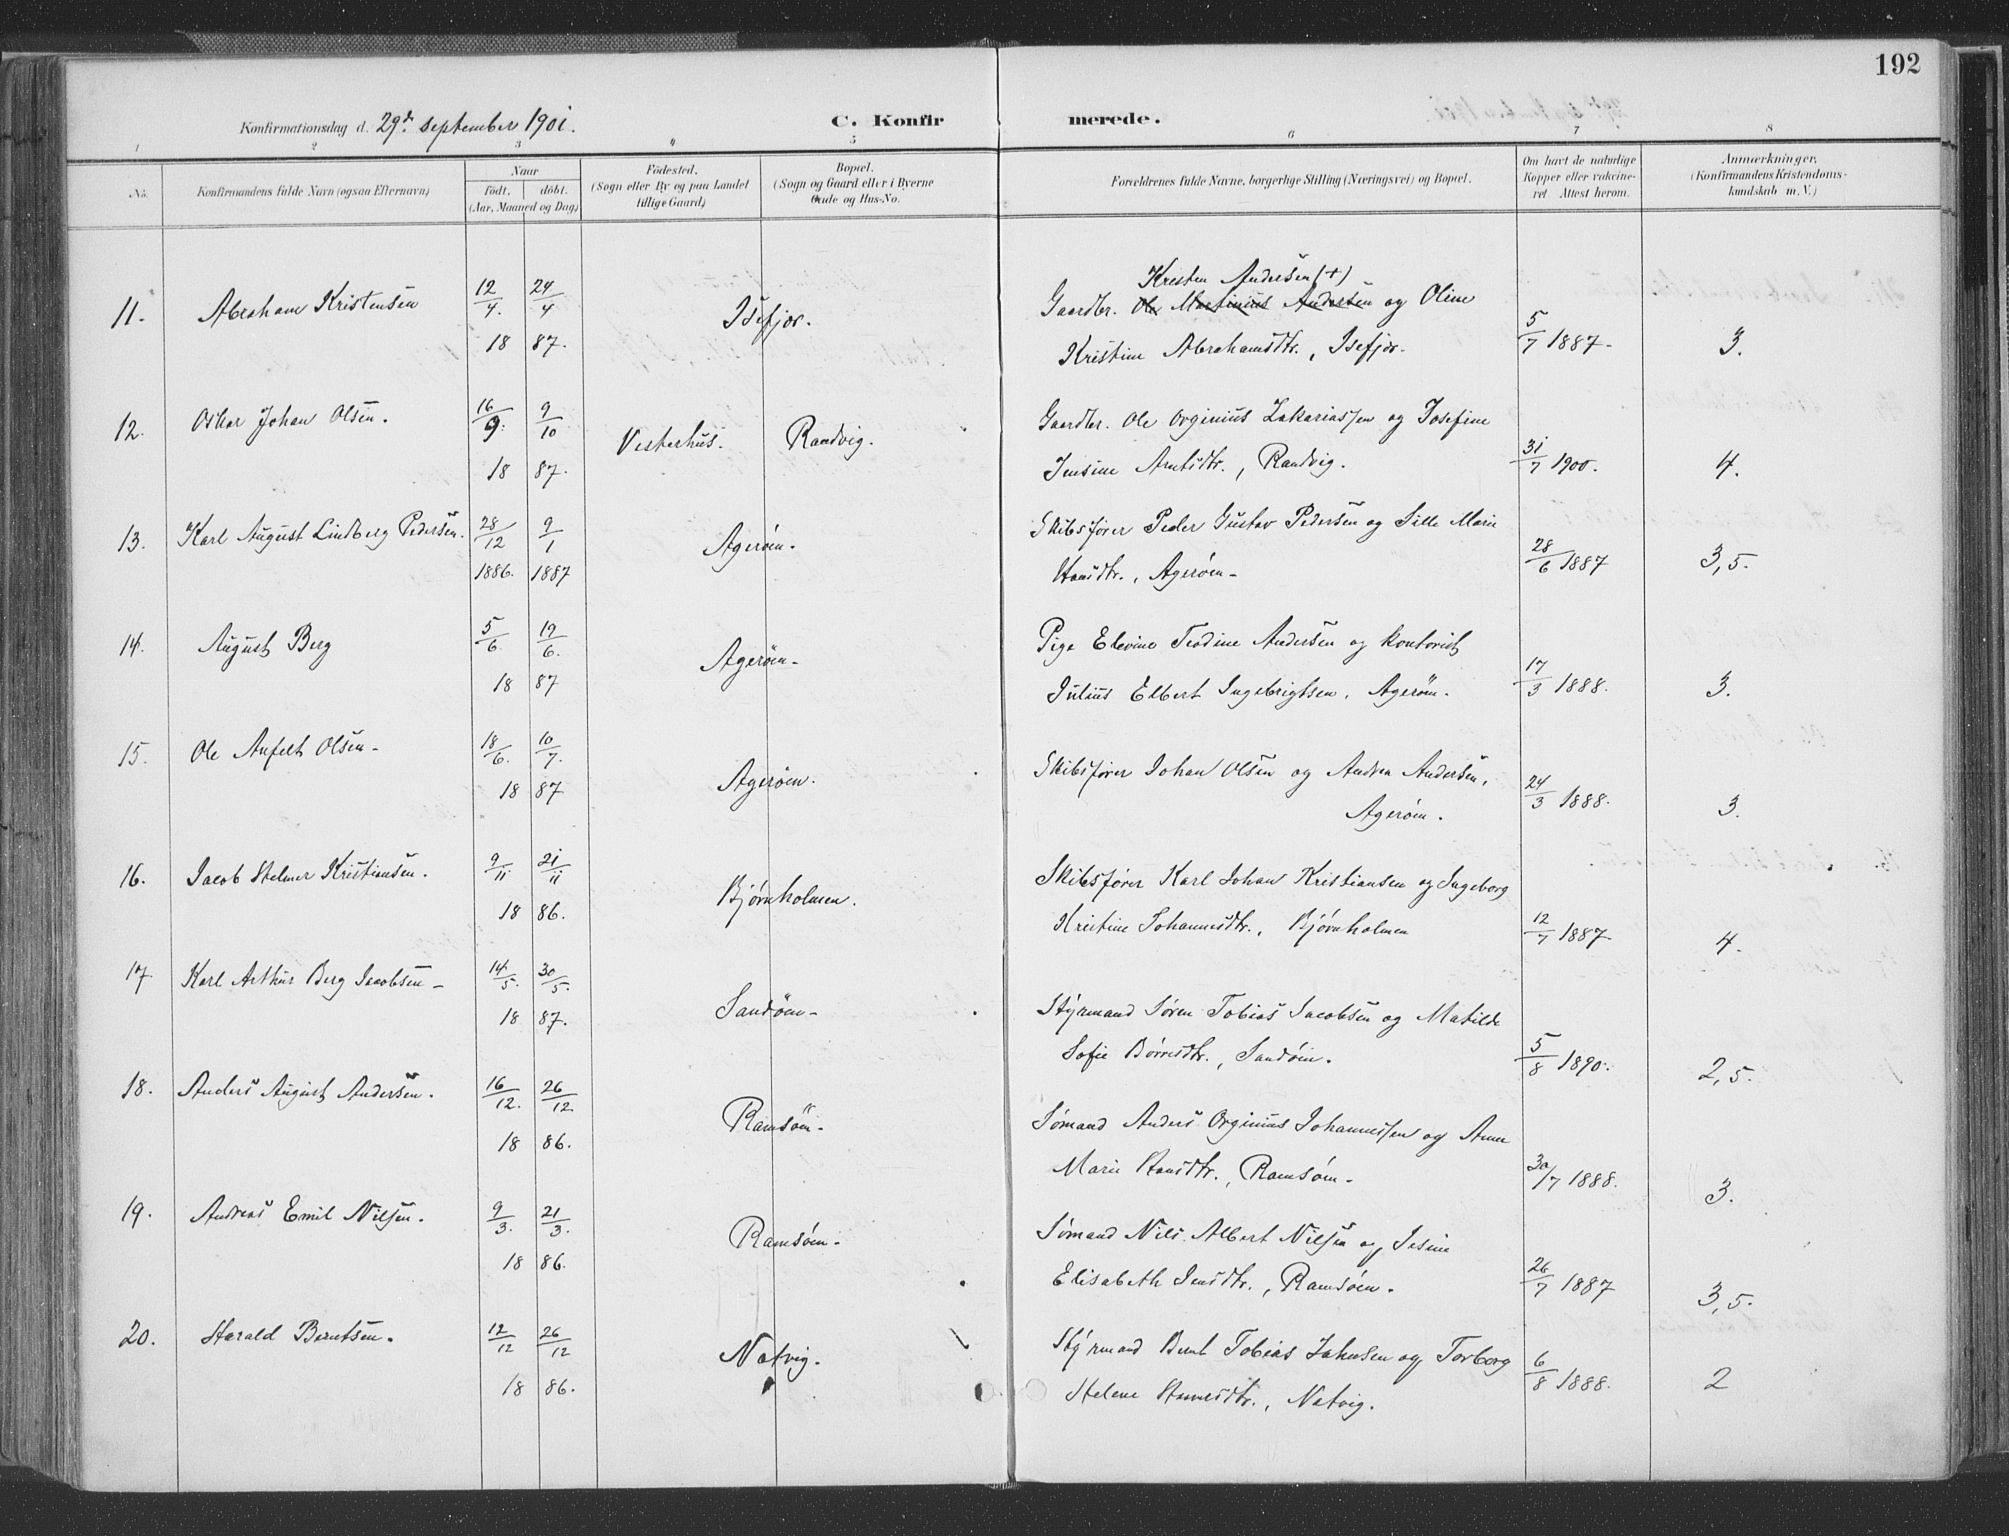 192
Konfirmationsdag d. 29de september 1901.
C. Konfir merede.
1 2 3 4 5 6 7 8
No. Konfirmandens fulde Navn (ogsaa Efternavn) Naar født. døbt. (Aar, Maaned og Dag) Fødested. (Sogn eller By og paa Landet tillige Gaard) Bopæl. (Sogn og Gaard eller i Byerne Gade og Hus-No. Forældrenes fulde Navne, borgerlige Stilling (Næringsvei) og Bopæl. Om havt de naturlige Kopper eller vakcineret Attest herom. Anmærkninger. (Konfirmandens Kristendomskundskab m. V.)
Kresten Andersen (+)
11. Abraham Kristensen 12/4. 24/4 Isefjær. Gaardbr. Ole Martinius Andersen og Oline
18 87. Kristine Abrahamsdtr., Isefjær. 5/7 1887. 3.
12. Oskar Johan Olsen. 16/9. 9/10 Vesterhus. Randvig. Gaardbr. Ole Orginius Zakariassen og Josefine
18 87. Jensine Arntsdtr., Randvig. 31/7 1900. 4.
13. Karl August Lindberg Pedersen. 28/12 9/1 Agerøen. Skibsfører Peder Gustav Pedersen og Sille Marie
1886. 1887 Hansdtr., Agerøen. 28/6 1887 3,5.
14. August Berg 5/6. 19/6. Agerøen. Pige Elevine Teodine Andersen og kontorist
18 87 Julius Elbert Ingebrigtsen, Agerøen. 17/3 1888. 3.
15. Ole Anfelt Olsen. 18/6. 10/7. Agerøen. Skibsfører Johan Olsen og Andrea Andersen,
18 87 Agerøen. 24/3 1888. 3.
16. Jacob Helmer Kristiansen. 9/11 21/11 Bjørnholmen. Skibsfører Karl Johan Kristiansen og Ingeborg
18 86. Kristine Johannesdtr., Bjørnholmen 12/7 1887 4.
17 Karl Arthur Berg Jacobsen. 14/5. 30/5. Sandøen. Styrmand Søren Tobias Jacobsen og Matilde
18 87. Sofie Børresdtr., Sandøen. 5/8 1890. 2,5.
18. Anders August Andersen. 16/12. 26/12 Ramsøen. Sømand Anders Orginius Johannessen og Anne
18 86. Marie Hansdtr., Ramsøen. 30/7 1888. 3.
19. Andreas Emil Nilsen. 9/3. 21/3. Ramsøen. Sømand Nils Albert Nilsen og Jesine
18 86. Elisabeth Jensdtr., Ramsøen. 26/7 1887 3,5.
20. Harald Berntsen. 12/12 26/12 Natvig. Styrmand Bernt Tobias Jahnsen og Torborg
18 86. Helene Hannesdtr., Natvig. 6/8 1888. 2